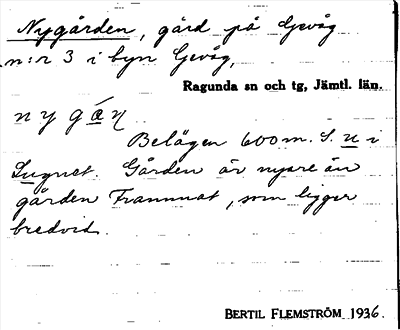 Nygården, gård på Gevåg
n:r 3 i byn Gevåg,
Ragunda sn och tg, Jämtl. län.
Belägen 600 m. S. n i
Lugnet. Gården är nyare än
gården Framnat, som ligger
bredvid.
BERTIL FLEMSTRÖM 1936.